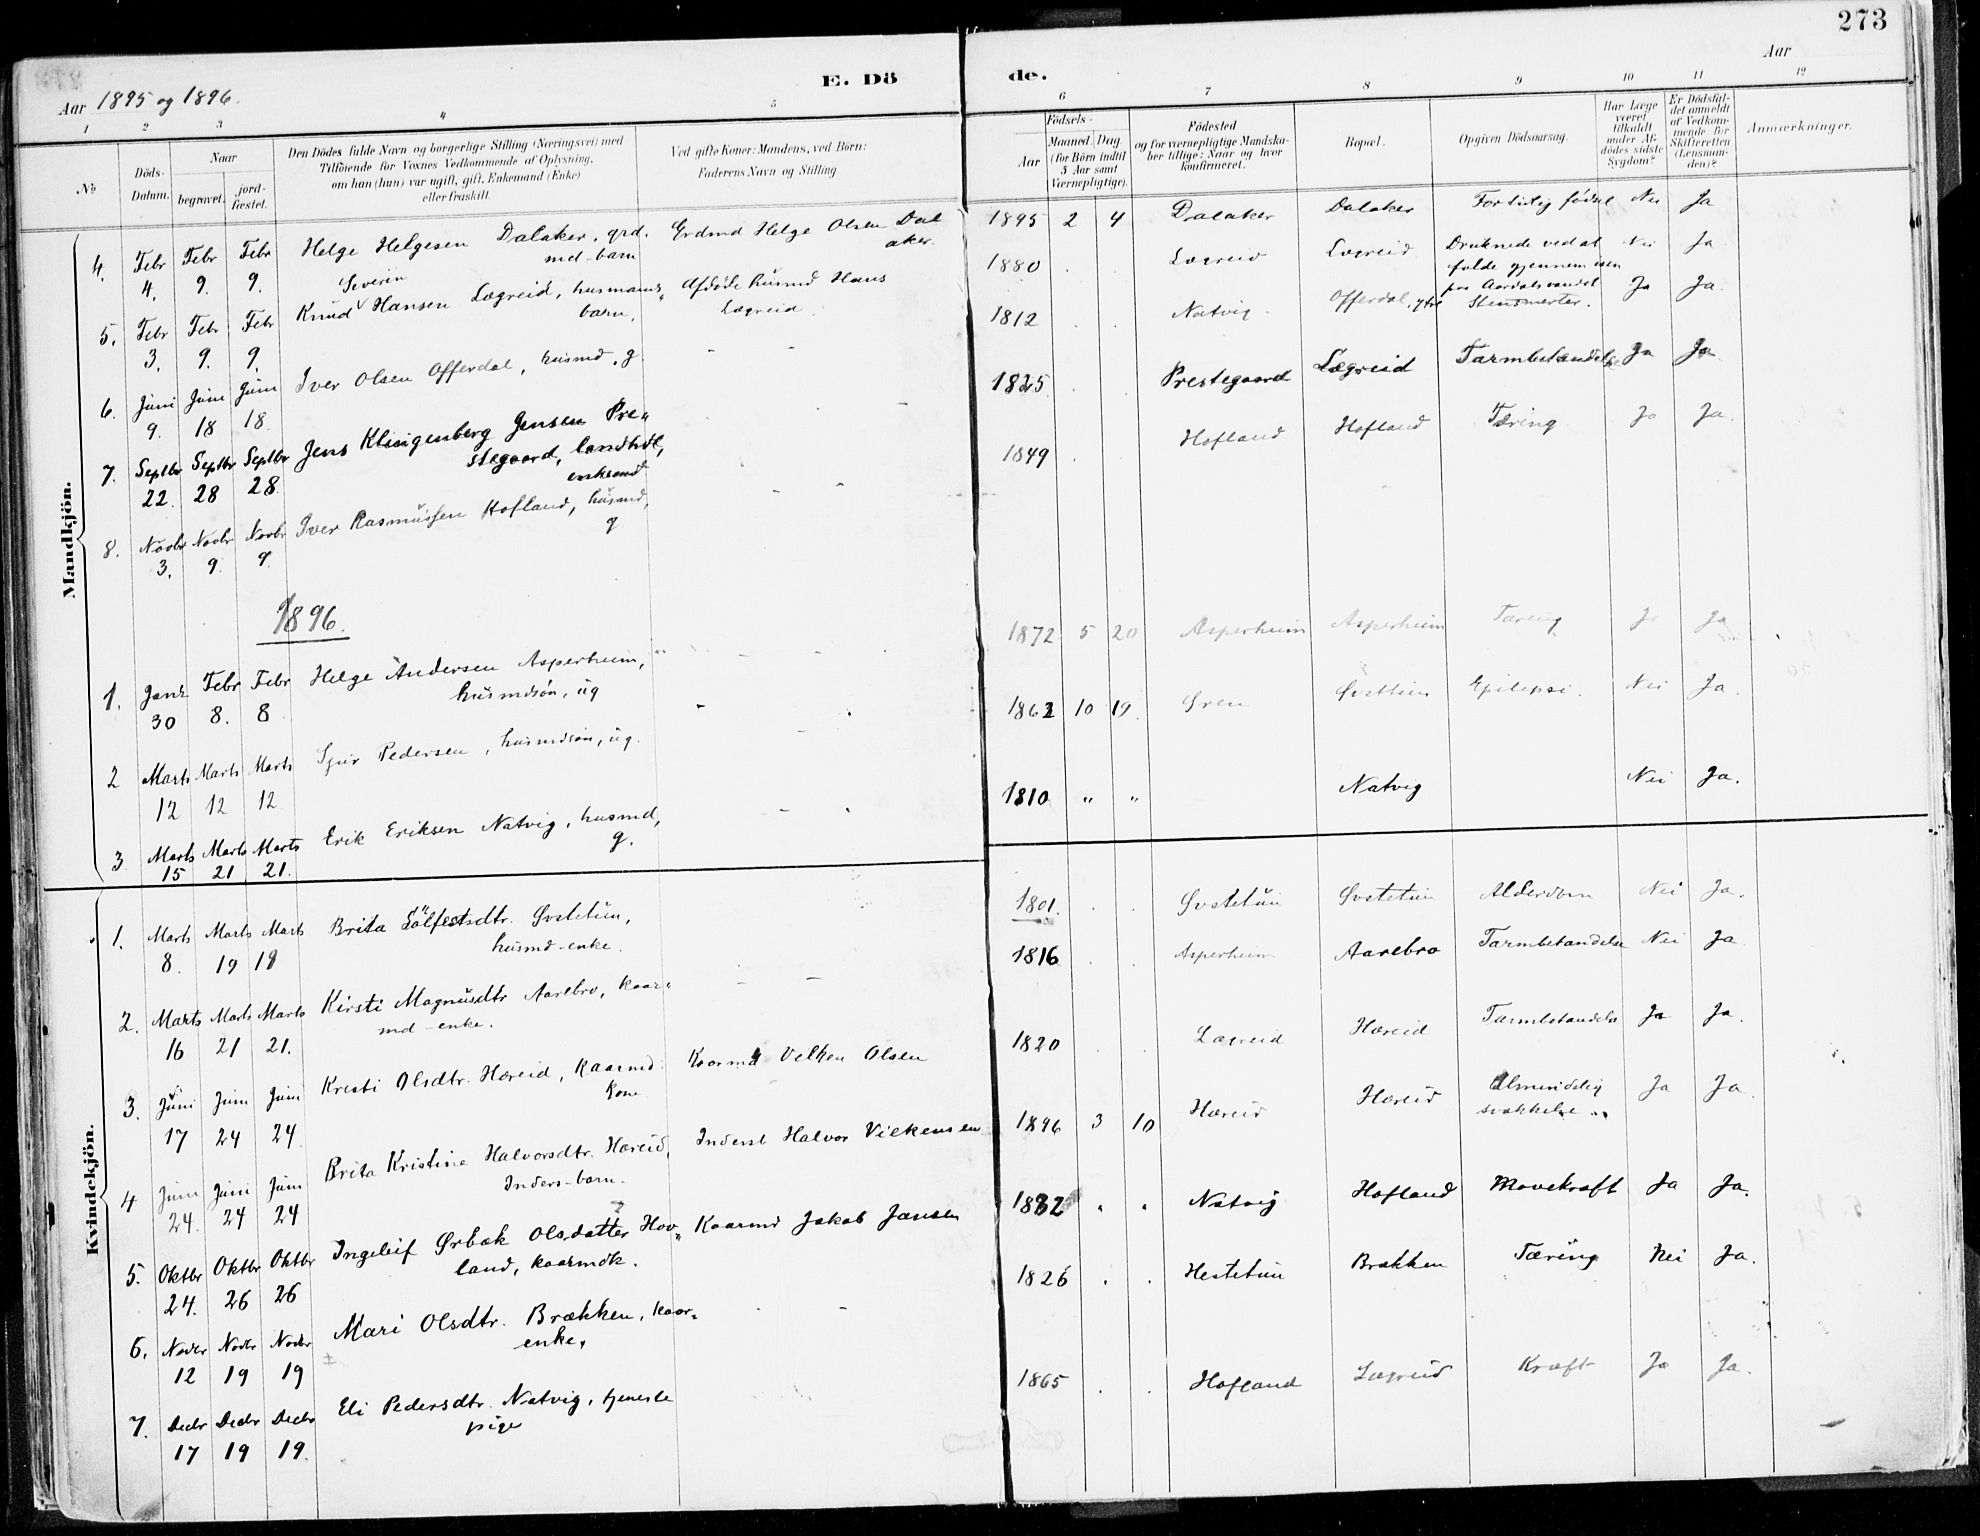 273
Aar 1895 og 1896.
E. Dö
de.
Aar
1 2 3 4 5 6 7 8 9 10 11 12
No
Döds-
Datum.
Naar
begravet.
jord-
fæstet.
Den Dödes fulde Navn og borgerlige Stilling (Næringsvei) med
Tilföiende for Voxnes Vedkommende af Oplysning,
om han (hun) var ugift, gift, Enkemand (Enke)
eller fraskilt.
Ved gifte Koner: Mandens, ved Börn:
Faderens Navn og Stilling
Födsels-
Aar
Maaned. Dag
(for Börn indtil
5 Aar samt
Værnepligtige).
Födested
og for værnepligtige Mandska-
ber tillige: Naar og hvor
konfirmeret.
Bopæl.
Opgiven Dödsaarsag.
Har Læge
været
tilkaldt
under Af-
dödes sidste
Sygdom?
Er Dödsfal-
det anmeldt
af Vedkom-
mende for
Skifteretten
(Lensman-
den)?
Anmærkninger.
Mandkjön.
4. Febr 4. Febr 9. Febr 9. Helge Helgesen Dalaker, grd.
md-barn
Grdmd Helge Olsen Dal
aker.
1895 2 4 Dalaker Dalaker For tidlig födsel Nei Ja
5. Febr 3. Febr 9. Febr 9. Severin
Knud Hansen Lægreid, husmans
barn,
Afdöde husmd Hans
Lægreid
1880 Lægreid Lægreid Druknede ved at
falde gjennem isen
paa Aardalsvandet Nei Ja
6. Juni 9. Juni 18 Juni 18. Iver Olsen Offerdal, husmd, g
1812 Natvig Offerdal, ytre Stensmerter. Ja Ja.
7. Septbr 22. Septbr 28 Septbr 28. Jens Klingenberg Jensen Pre„
stegaard, landhdl,
enkemd
1825 Prestegaard Lægreid Tarmbetændelse Ja Ja
8. Novbr 3. Novbr 9. Novbr 9. Iver Rasmussen Hofland, husmd,
g
1849 Hofland Hofland Tæring Ja Ja.
1896.
1. Janr 30 Febr 8. Febr 8 Helge Andersen Asperheim,
husmdsøn, ug
1872 5 20 Asperheim Asperheim Tæring Ja Ja
2 Marts 12 Marts 12 Marts 12. Sjur Pedersen, husmdsøn, ug.
1862 10 19. Øren Øvstetun Epilepsi. Nei Ja.
3 Marts 15 Marts 21 Marts 21. Erik Eriksen Natvig, husmd,
g.
1810 „ „ Natvig Nei Ja.
Kvindekjön.
1. Marts 8. Marts 19 Marts 19 Brita Sølfestsdtr. Øvstetun,
husmd-enke.
1801. Øvstetun Øvstetun Alderdom Nei Ja.
2. Marts 16 Marts 21 Marts 21. Kirsti Magnusdtr Aarebro, kaar„
md-enke.
1816 Asperheim Aarebro Tarmbetændelse Nei Ja
3. Juni 17 Juni 24 Juni 24. Kristi Olsdtr. Hæreid, Kaarmd
kone
Kaarmd Velken Olsen
1820 Lægreid Hæreid Tarmbetændelse Ja Ja.
4 Juni 24. Juni 24 Juni 24 Brita Kristine Halvorsdtr. Hæreid,
Inders-barn.
Inderst Halvor Vilkensen
1896 3 10 Hæreid Hæreid Almindelig
svækkelse Ja Ja.
5. Oktbr 24. Oktbr 26 Oktbr 26 Ingeleif Ørbæk Olsdatter Hov„
land, kaarmdk.
Kaarmd Jakob Jansen
1832 „ „ Natvig Hofland Mavekræft Ja Ja.
6. Novbr 12 Novbr 19 Novbr 19 Mari Olsdtr. Brækken, kaar„
enke.
1826 Hestetun Brækken Tæring Nei Ja.
7. Decbr 17 Decbr 19 Decbr 19. Eli Pedersdtr. Natvig, tjeneste
pige
1865 Hofland Lægreid Kræft Ja Ja.